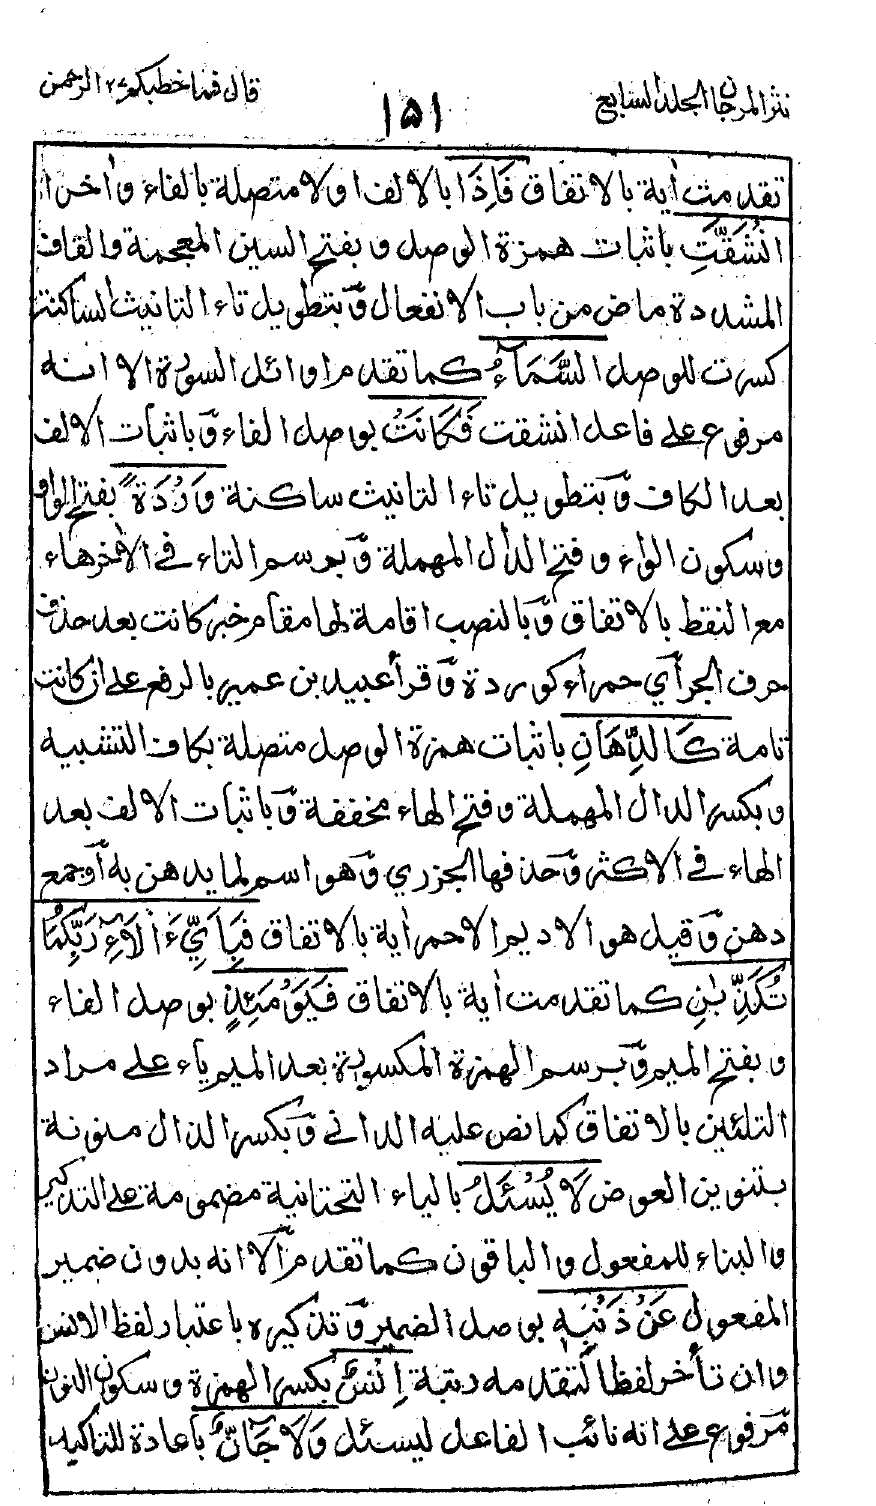 نثر المرجان الجلد السابع
١٥١
قال فما خطبكم ٢٧ الرحمن
تقدمت أية بالاتفاق فَاِذَا بالالف اولا متصلة بالفاء واٰخرا
انْشَقَّتِ باثبات همزة الوصل وبفتح السين المعجمة والقاف
المشددة ماض من باب الانفعال وَبتطويل تاء التانيث الساكنة
كسرت للوصل السَّمَآءُ كما تقدم اوائل السورة الا انه
مرفوع على فاعل انشقت فَكَانَتْ بوصل الفاء وَباثبات الالف
بعد الكاف وَبتطويل تاء التانيث ساكنة وَرْدَةً بفتح الواو
وسكون الراء وفتح الدال المهملة وَبرسم التاء في الاٰخر هاء
مع النقط بالاتفاق وَبالنصب اقامة لها مقام خبر كانت بعد حذف
حرف الجر أي حمراء كوردة وَقرأ عبيد بن عمير بالرفع على ان كانت
تامة كَالدِّهَانِ باثبات همزة الوصل متصلة بكاف التشبيه
وبكسر الدال المهملة وفتح الهاء مخففة وَباثبات الالف بعد
الهاء في الاكثر وَحذفها الجزري وَهو اسم لما يدهن به أوجمع
دهن وَقيل هو الاديم الاحمر أية بالاتفاق فَبِاَيِّ اٰلَآءِ رَبِّكُمَا
تُكَذِّبٰنِ كما تقدمت أية بالاتفاق فَيَوْمَئِذٍ بوصل الفاء
وبفتح الميم وَبرسم الهمزة المكسورة بعد الميم ياء على مراد
التليين بالاتفاق كما نص عليه الداني وَبكسر الذال منونة
بتنوين العوض لَا يُسْئَلُ بالياء التحتانية مضمومة على التذكير
والبناء للمفعول والباقون كما تقدم الّا انه بدون ضمير
المفعول عَنْ ذَنْبِهٖ بوصل الضمير وَتذكيره باعتبار لفظ الانس
وان تأخر لفظا لتقدمه رتبة اِنْسٌ بكسر الهمزة وسكون النون
مَرفوع على انه نائب الفاعل ليسئل وَلَا جَآنٌّ باعادة للتاكيد